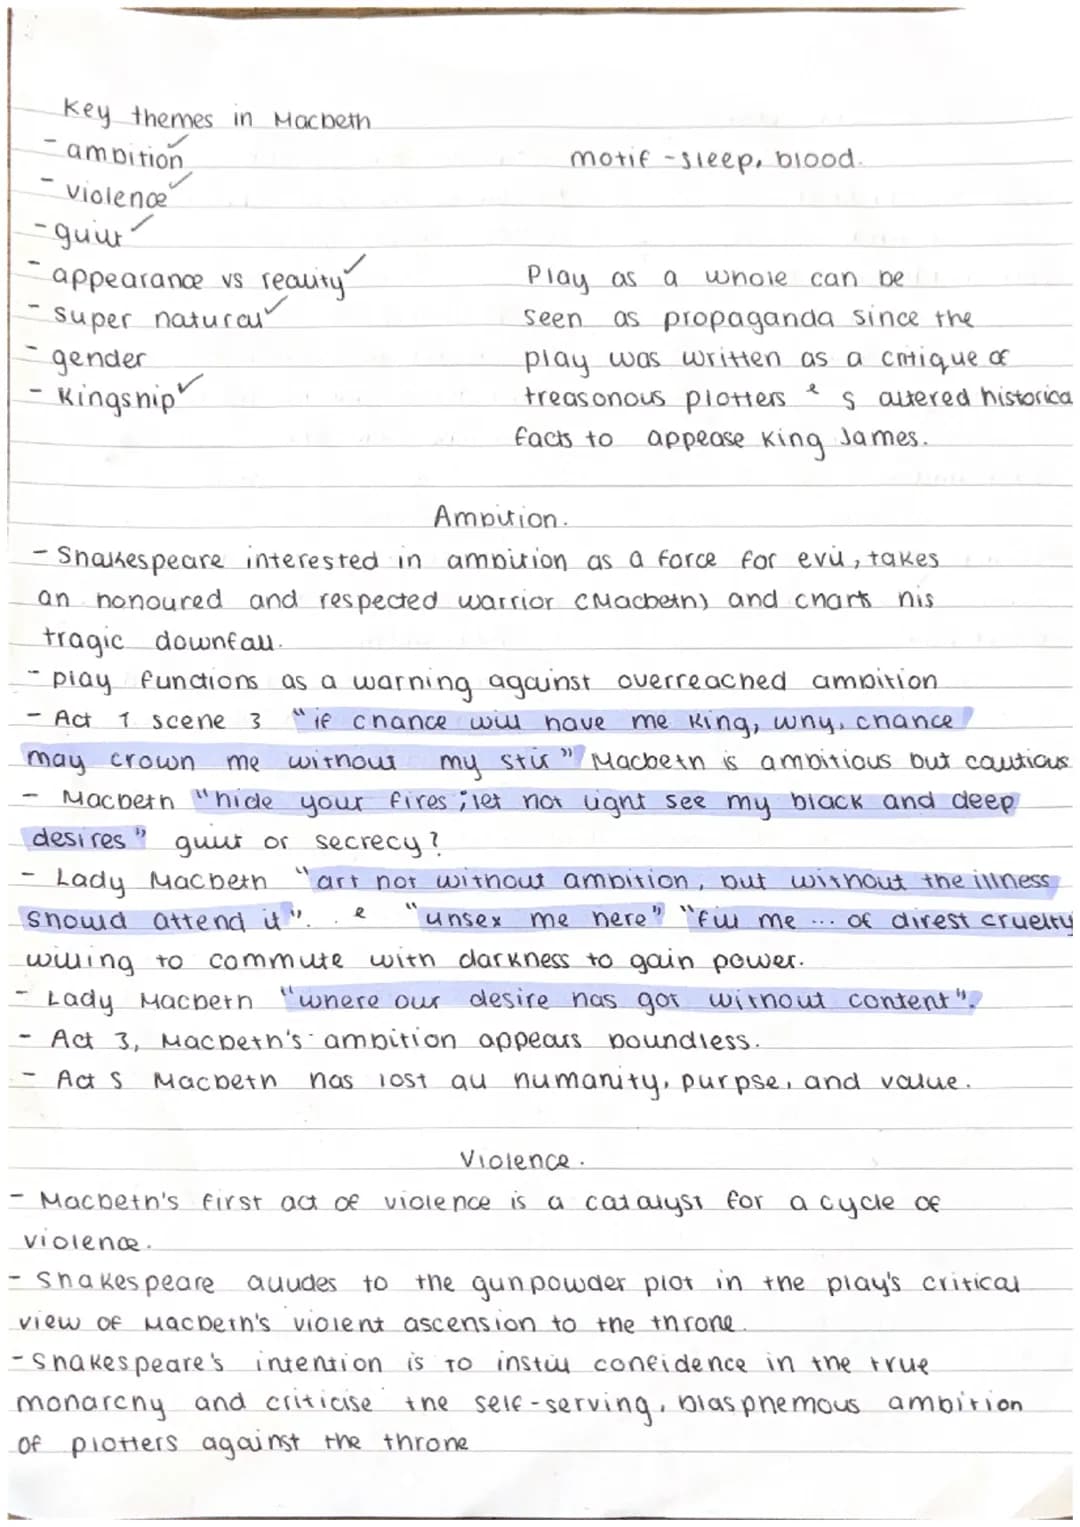 Key themes in Macbeth
- ambition ✓
motif - sleep, blood.
- violence ✓
- guilt ✓
- appearance vs reality ✓
- super natural ✓
- gender
- Kingship ✓
Play as a whole can be
seen as propaganda since the
play was written as a critique of
treasonous plotters & s altered historica
facts to appease King James.
Ambition.
- Shakespeare interested in ambition as a force for evil, takes
an honoured and respected warrior (Macbeth) and charts his
tragic downfall.
- play functions as a warning against overreached ambition
- Act 1 scene 3 "if chance will have me King, why, chance
may crown me without my stir" Macbeth is ambitious but cautious
- Macbeth "hide your fires; let not light see my black and deep
desires" guilt or secrecy?
- Lady Macbeth "art not without ambition, but without the illness
should attend it". & "unsex me here" "fill me ... of direst cruelty
willing to commute with darkness to gain power.
- Lady Macbeth "where our desire has got without content".
- Act 3, Macbeth's ambition appears boundless.
- Act 5 Macbeth has lost all humanity, purpse, and value.
Violence.
- Macbeth's first act of violence is a catalyst for a cycle of
violence.
- Shakespeare alludes to the gunpowder plot in the play's critical
view of Macbeth's violent ascension to the throne.
- Shakespeare's intention is to instill confidence in the true
monarchy and criticise the self-serving, blasphemous ambition
of plotters against the throne